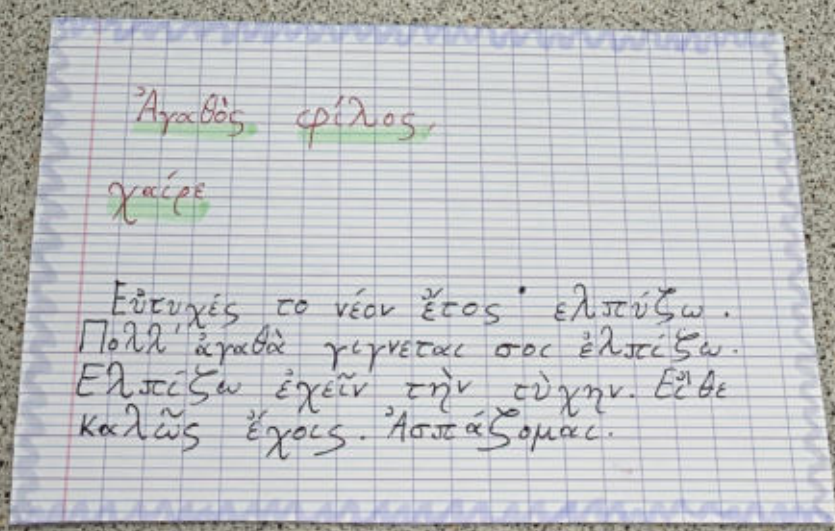 Ἀγαθὸς φίλος,
χαίρε
Εὐτυχές το νέον ἔτος · ελπύζω.
Πολλ' ἀγαθὰ γίγνεται σοι ἐλπίζω.
Ελπίζω ἐχεῖν τὴν τὺχην. Εἴθε
καλῶς ἔχοις. Ἀσπάζομαι.